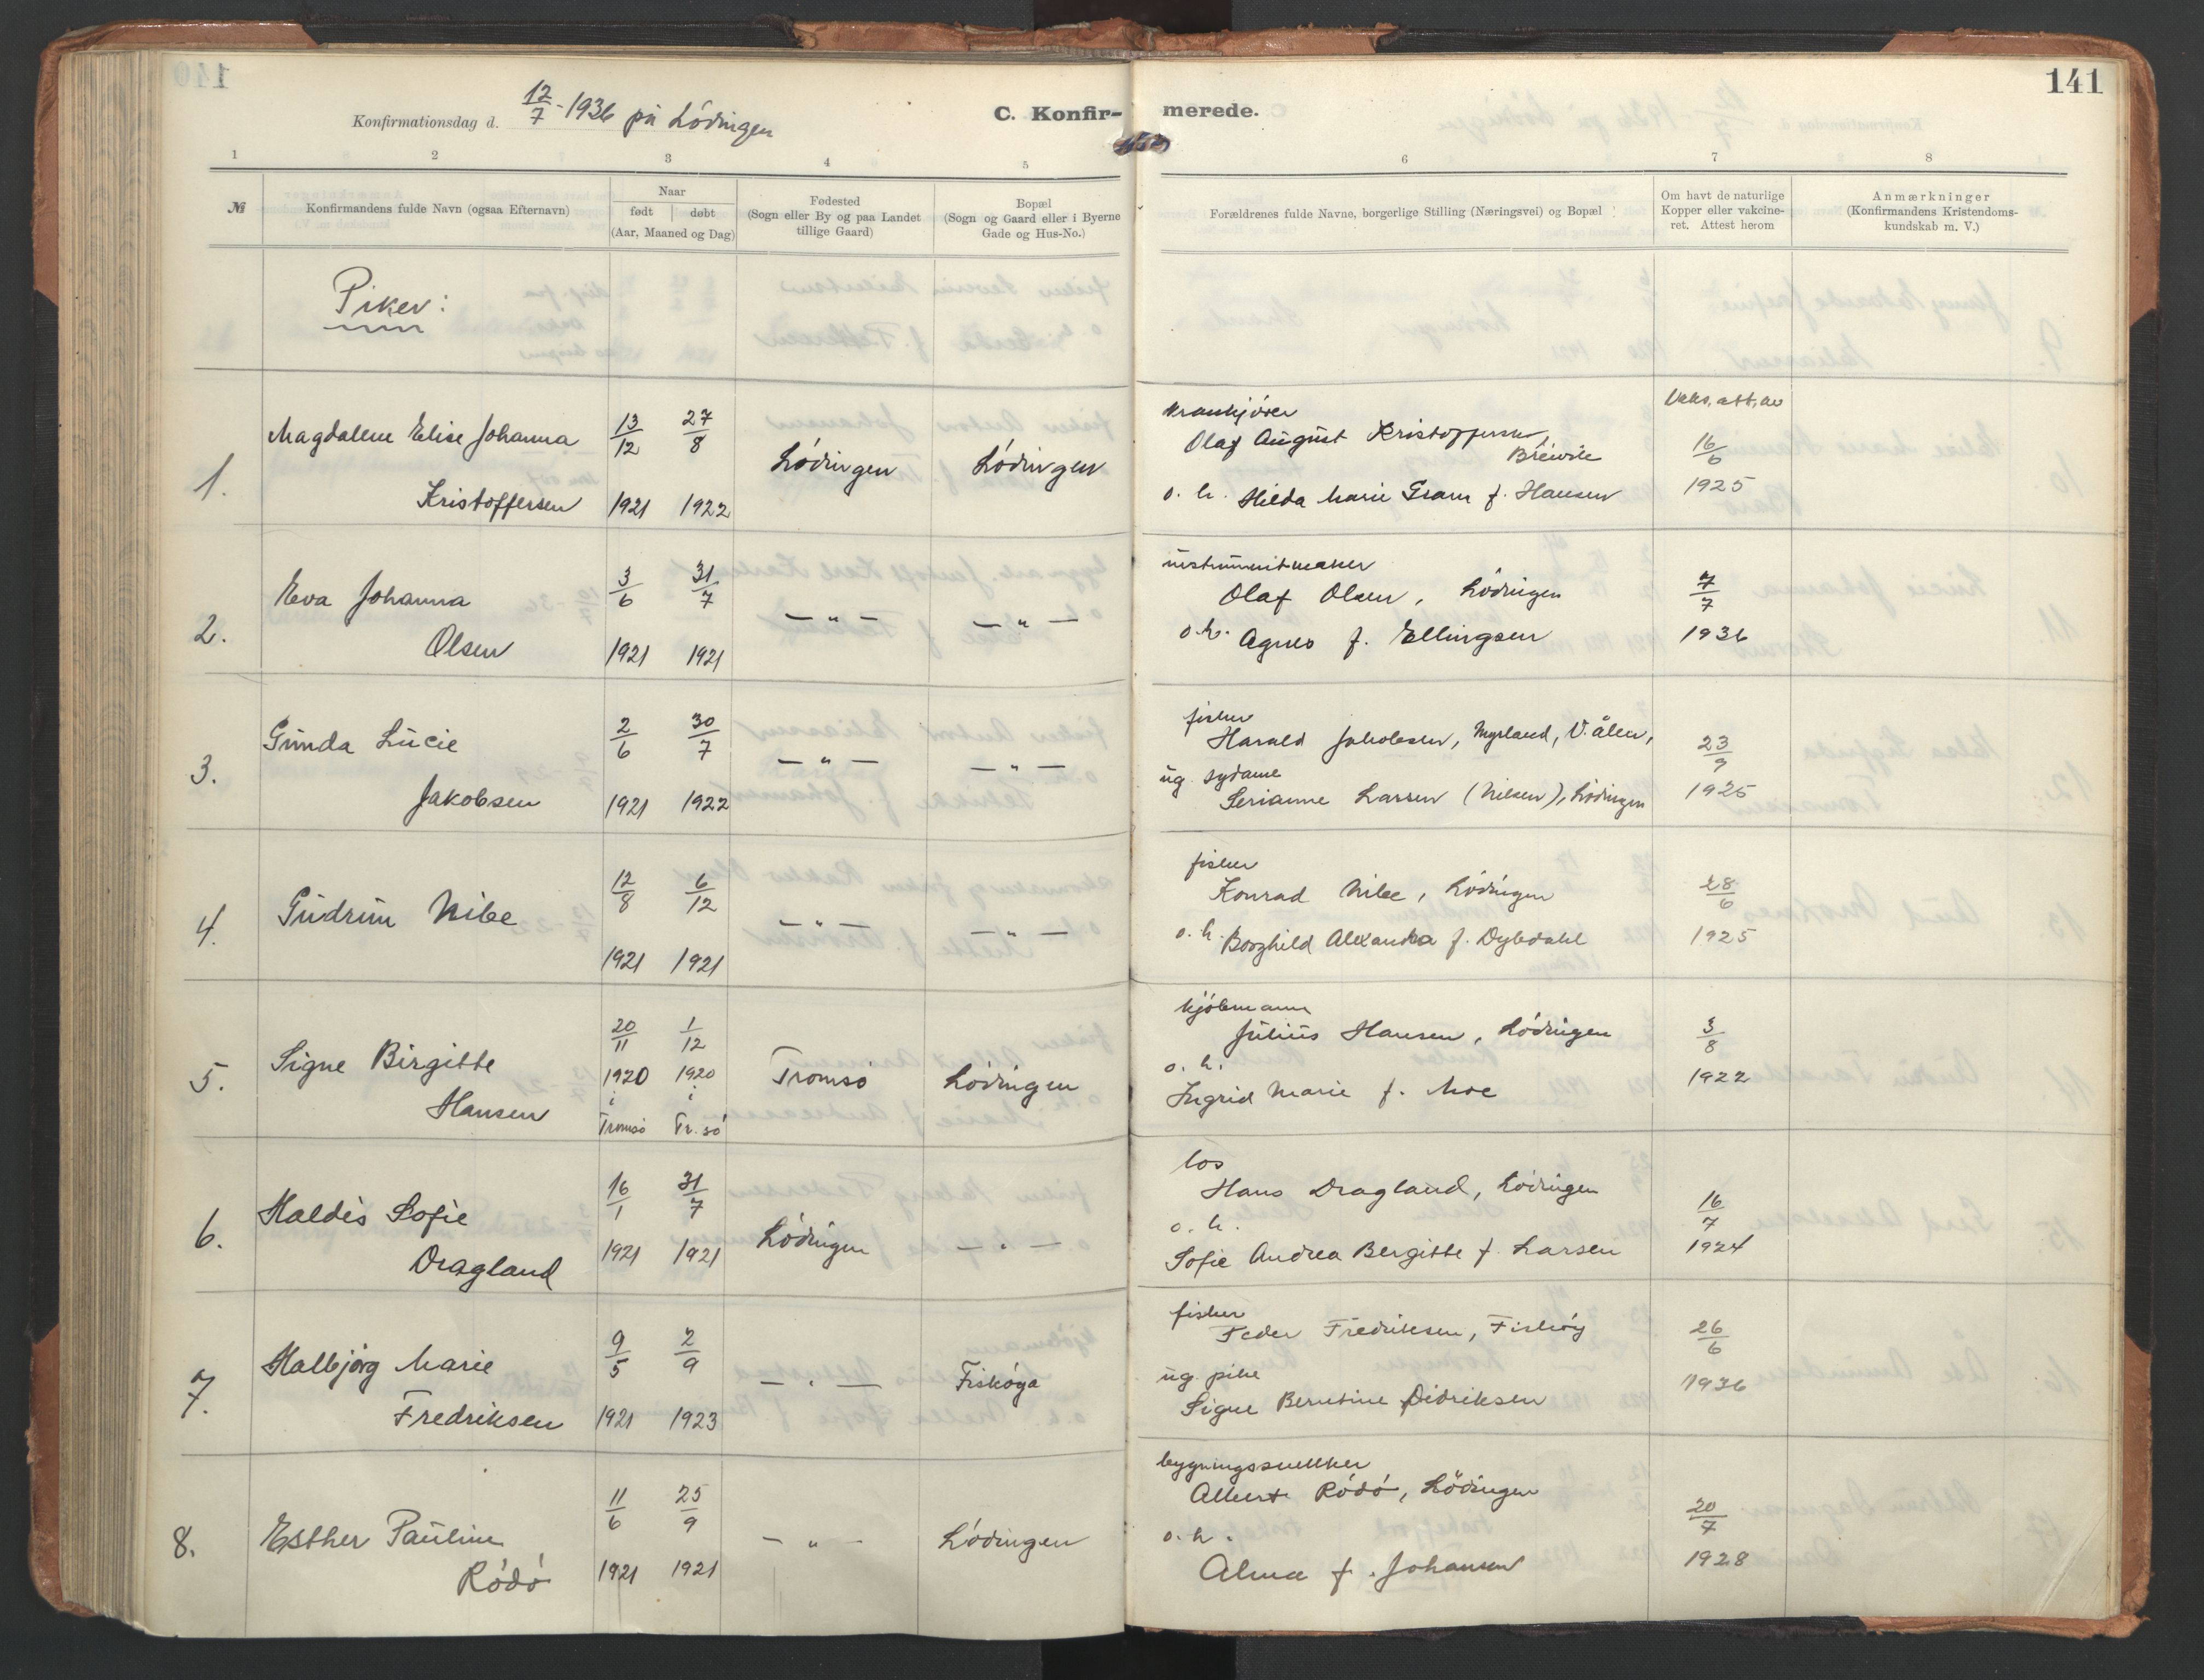 141
Konfirmationsdag d. 12/7 - 1936 på Lödingen
C. Konfir- merede.
1 2 3 4 5 6 7 8
№
Konfirmandens fulde Navn (ogsaa Efternavn)
Naar
født døbt
(Aar, Maaned og Dag)
Fødested
(Sogn eller By og paa Landet
tillige Gaard)
Bopæl
(Sogn og Gaard eller i Byerne
Gade og Hus-No.)
Forældrenes fulde Navne, borgerlige Stilling (Næringsvei) og Bopæl
Om havt de naturlige
Kopper eller vakcine-
ret. Attest herom
Anmærkninger
(Konfirmandens Kristendoms-
kundskab m. V.)
Piker:
1.
Magdalene Elise Johanna
Kristoffersen
13/12 27/8
1921 1922
Lödingen
Lödingen
Olaf August Kristoffersen,
o. h. Hilda Marie Gram f. Hansen
Vaks. att. av
16/6
1925
2.
Eva Johanna
Olsen
3/6 31/7
1921 1921
— " —
— " —
instrumentmaker
Olaf Olsen, Lödingen
o. h. Agnes f. Ellingsen
7/7
1936
3.
Gunda Lucie
Jakobsen
2/6 30/7
1921 1922
— " —
— " —
fisker
Harald Jakobsen, Myrland, V. ålen,
ug. sydame
Serianne Larsen (Nilsen), Lödingen
23/9
1925
4.
Gudrun Nibe
12/8 6/12
1921 1921
— " —
— " —
fisker
Konrad Nibe, Lödingen
o. h. Borghild Alexandra f. Dybdahl
28/6
1925
5.
Signe Birgitte
Hansen
20/11 1/12
1920 1920
i i
Tromsö Tr. sö
Tromsö
Lödingen
kjöbmann
Julius Hansen, Lödingen
o. h.
Ingrid Marie f. Moe
3/8
1922
6.
Haldis Sofie
Dragland
16/1 31/7
1921 1921
Lödingen
— " —
los
Hans Dragland, Lödingen
o. h.
Sofie Andrea Bergitte f. Larsen
16/7
1924
7.
Halbjörg Marie
Fredriksen
9/5 2/9
1921 1923
— " —
Fisköya
fisker
Peder Fredriksen, Fisköy
ug. pike
Signe Berntine Didriksen
26/6
1936
8.
Esther Pauline
Rödö
11/6 25/9
1921 1921
— " —
Lödingen
bygningssnekker
Albert Rödö, Lödingen
o. h.
Alma f. Johansen
20/7
1928